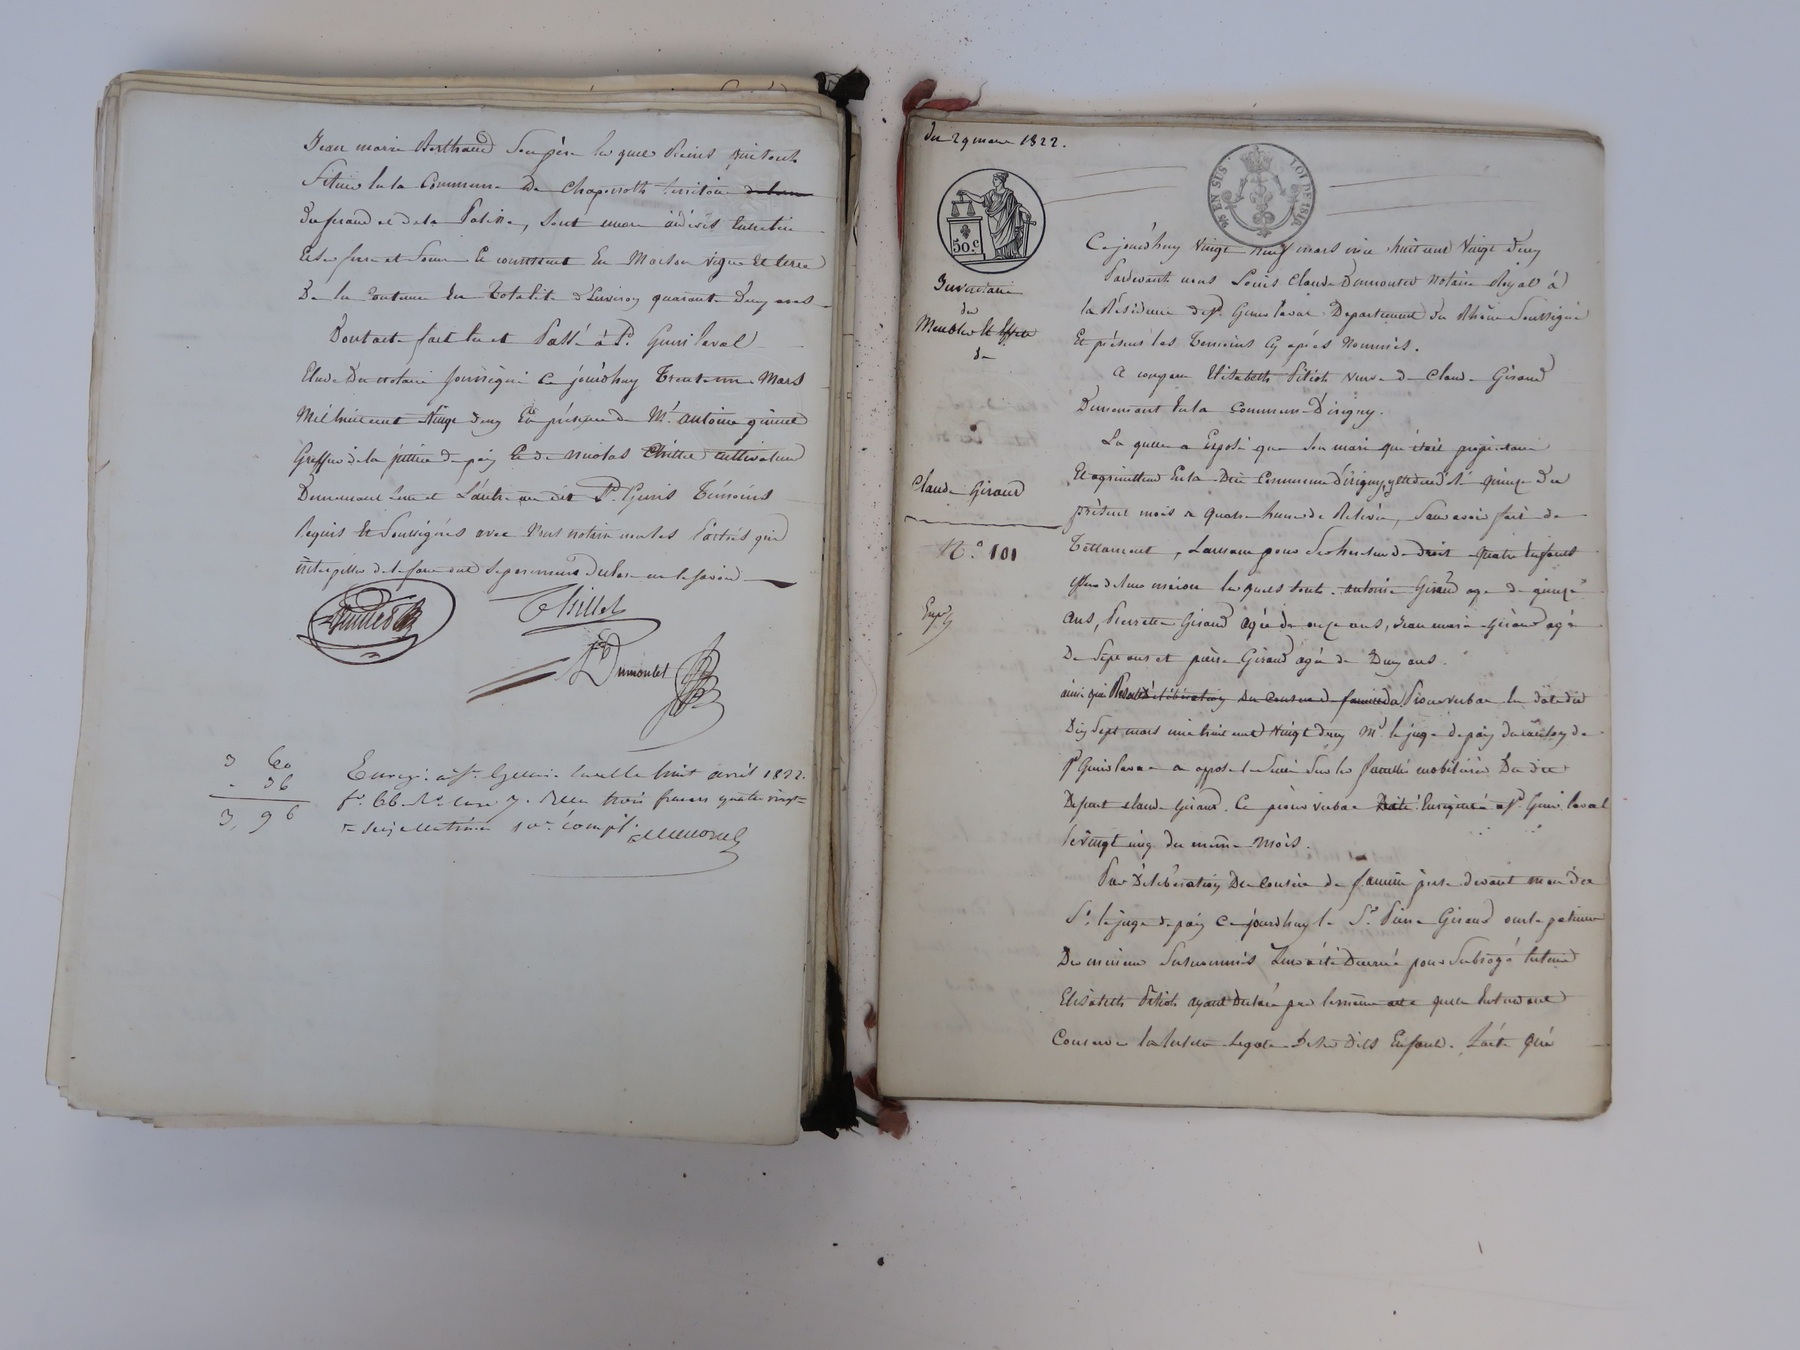 Jean marie Berthaud Son père les quels Biens
Situés en la Commune De Chaponost territoire
Du ferand et de la Patisse, Sont encore indivis Entre lui
Et Ses frere et Soeur Et consistent En Maison Vigne Et terre
De la Contenue En Totalité d'Environ quarante Deux ares
Dont acte fait lu et Passé à St. Genis laval
Etude Du notaire soussigné Ce jourd'huy Trente un Mars
Mil huit cent Vingt deux En présence de Mr. antoine
Greffier de la justice de paix Et de nicolas Thillet Cultivateur
Demeurant l'un et L'autre au dit St. Genis Témoins
Requis Et Soussignés avec Nous notaire non les Parties qui
interpellées de le faire ont Separement Declaré ne le Savoir
Thillet
Dumontet
3 60
. 36
3, 96
Enregé. à St. Genis laval le huit avril 1822.
fo. 66 Ro. case 7. Reçu trois francs quatre vingt
seize centimes 10e. compé.
du 29 mars 1822.
98 EN SUS. LOI DE 1816
50 c
Inventaire
des
Meubles Et Effets
de
Claude Giraud
No. 101
Expé
Ce jourd'huy Vingt Neuf mars mil huit cent Vingt Deux
Pardevant nous Louis Claude Dumontet Notaire Royal à
la Résidence de St. Genis laval Departement du Rhône Soussigné
Et présens les Temoins Cy après Nommés.
A comparu Elisabeth Pitiot Veuve de Claude Giraud
Demeurant En la Commune D'irigny.
La quelle a Exposé que Son mari qui était propriétaire
Et agriculteur En la Dite Commune D'irigny, y est décédé le quinze Du
présent mois a quatre heures de Relevée, Sans avoir fait de
Testament, Laissant pour Ses heritiers de droit quatre Enfants
de leur union les quels Sont. antoine Giraud age de quinze
ans, Pierrette Giraud agée de onze ans, Jean marie Giraud agé
De Sept ans et pierre Giraud agé de Deux ans.
ainsi que Procès verbal En date du
Dix Sept mars mil huit cent Vingt deux Mr. le juge de paix du canton de
St. Genis laval a apposé les Scellés Sur les facultés mobiliaires Du dit
Defunt claude Giraud. Ce procès verbal Enregistré a St. Genis laval
le vingt cinq du même Mois.
Par Déliberation Du Conseil de famille prise devant mon dit
Sr. le juge de paix Ce jourd'huy le Sr. Pierre Giraud oncle paternel
Des mineurs Susnommés Leur a été Donné pour Subrogé tuteur
Elisabeth Pitiot ayant Declaré par le même acte qu'elle Entendait
Conserver la tutelle Legale De Ses Dits Enfants.